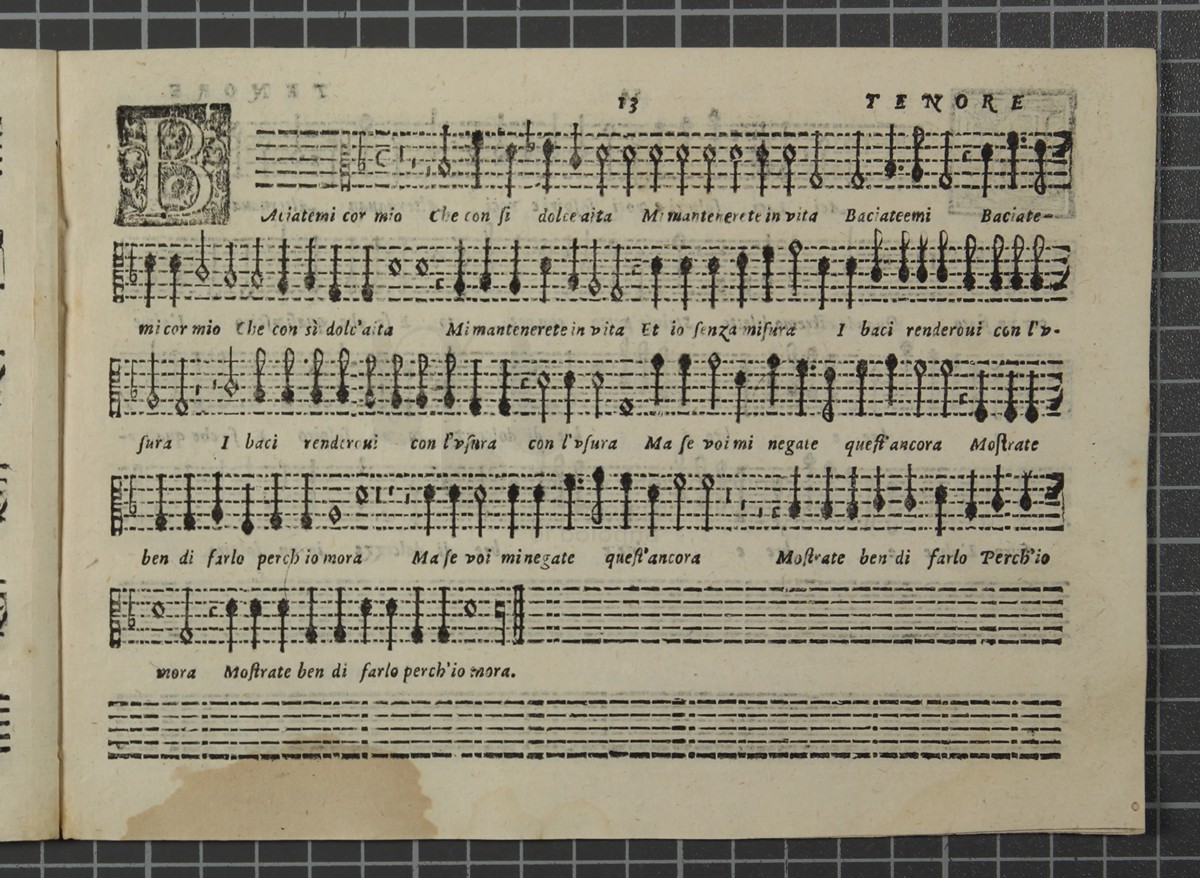 13 TENORE
BAciatemi cor mio Che con si dolce aita Mi mantenerete in vita Baciateemi Baciate-
mi cor mio Che con sì dolc'aita Mi mantenerete in vita Et io ſenza miſura I baci renderoui con l'v-
ſura I baci renderoui con l'vſura con l'vſura Ma ſe voi mi negate queſt'ancora Moſtrate
ben di farlo perch io mora Ma ſe voi mi negate queſt'ancora Moſtrate ben di farlo Perch'io
mora Moſtrate ben di farlo perch'io mora.